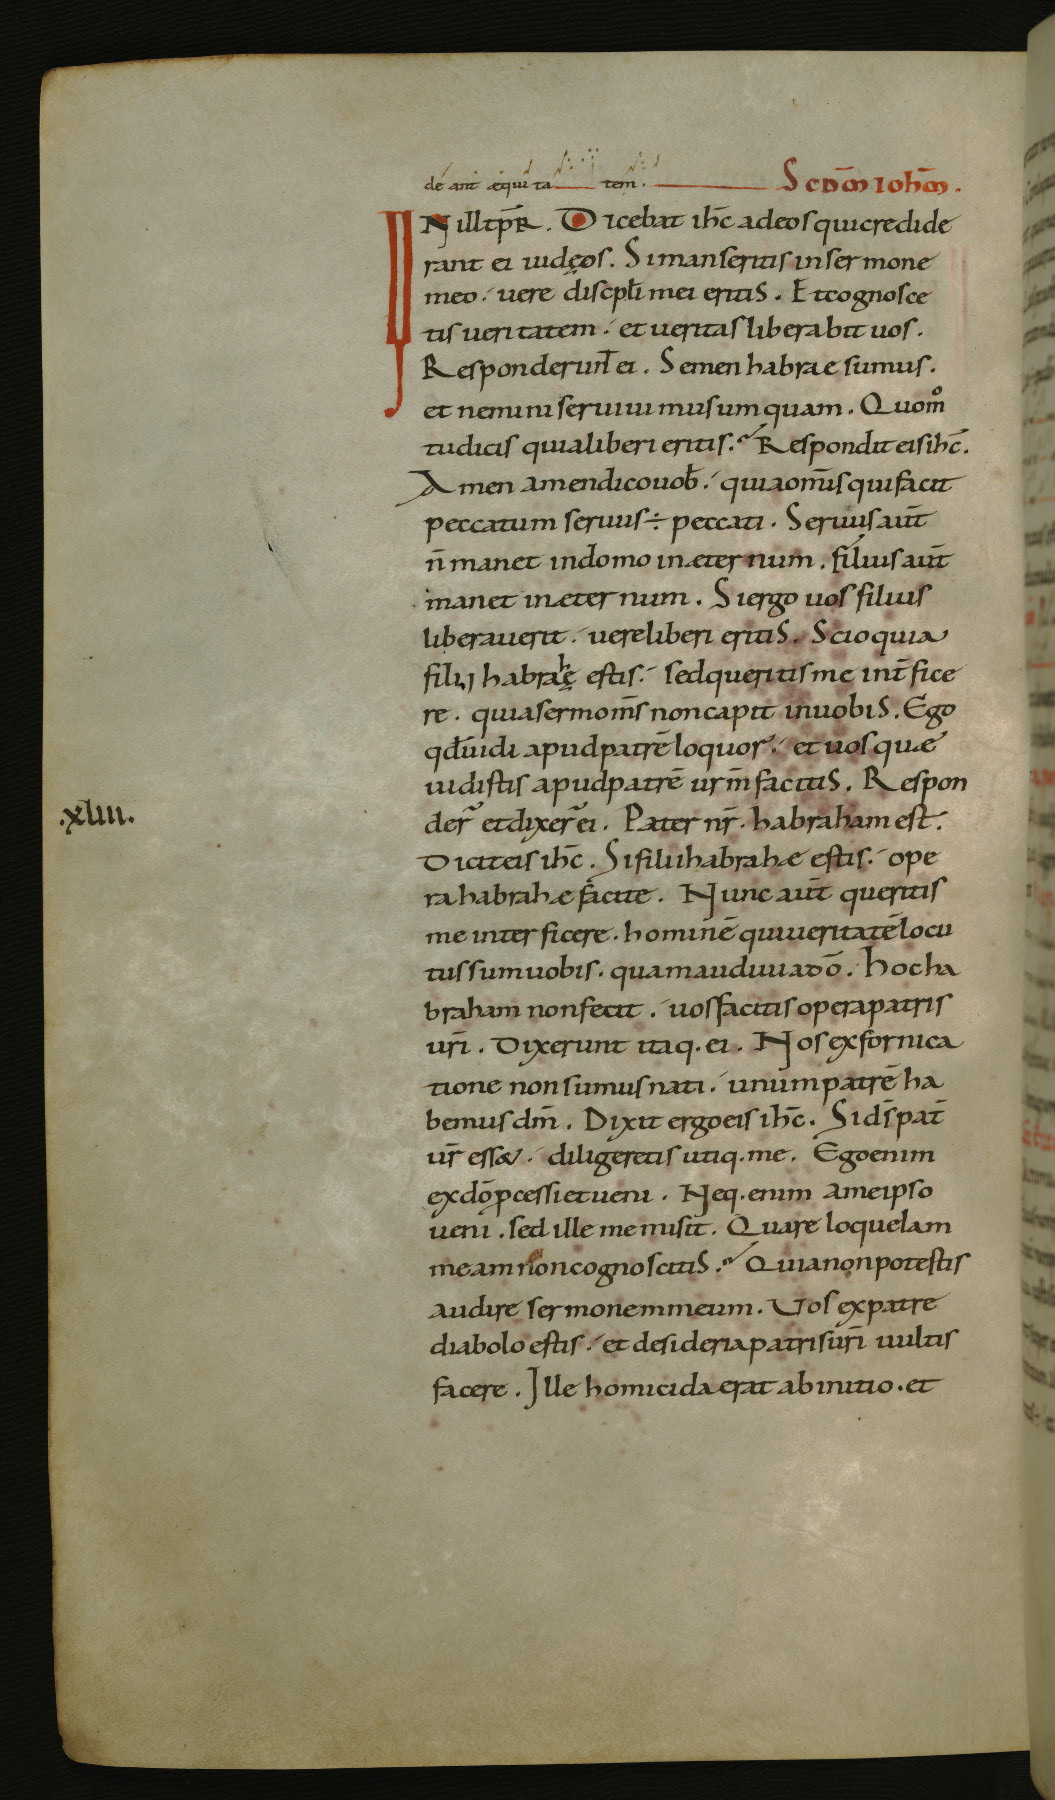 deant æqui ta tem.
Scdm Iohm.
IN ill tp̄r. Dicebat ih̄c adeos quicredide
rant ei iudęos. Simanseritis insermone
meo. uere discpl̄i mei eritis. Etcognosce
tis ueritatem. et ueritas liberabit uos.
Responderun̄t ei. Semen habrae sumus.
et nemini seruiuimus umquam. Quom̊
tudicis quialiberi eritis. Respondit eis ih̄c.
Amen amendicouob̄. quiaom̄is quifacit
peccatum seruus ÷ peccati. Seruus aut̄
n̄ manet indomo inæternum. filius aut̄
manet inæternum. Siergo uos filius
liberauerit. uereliberi eritis. Scioquia
filii habrahę estis. sedqueritisme int̄fice
re. quiasermom̄s noncapit inuobis. Ego
qd̄uidi apudpatrē loquor. et uos quæ
uidistis apudpatrē urm̄ facitis. Respon
.xliii.
der̄ etdixer̄ ei. Pater nr̄. habraham est.
Diciteis ih̄c. Sifilii habrahæ estis. ope
ra habrahæ facite. Nunc aut̄ queritis
me interficere. hominē quiueritatē locu
tussumuobis. quamaudiuiadō. Hoc ha
braham nonfecit. uosfacitis operapatris
ur̄i. Dixerunt itaq. ei. Nos exfornica
tione nonsumus nati. unumpatrē ha
bemus dm̄. Dixit ergoeis ih̄c. Sids̄ pat̄
ur̄ ess&. diligeretis utiq. me. Egoenim
exdō pcessi etueni. Neq. enim ameipso
ueni. sed ille me misit. Quare loquelam
meam noncognoscitis. Quianonpotestis
audire sermonemmeum. Uos expatre
diabolo estis. et desideriapatris ur̄i uultis
facere. Ille homicidaerat abinitio. et